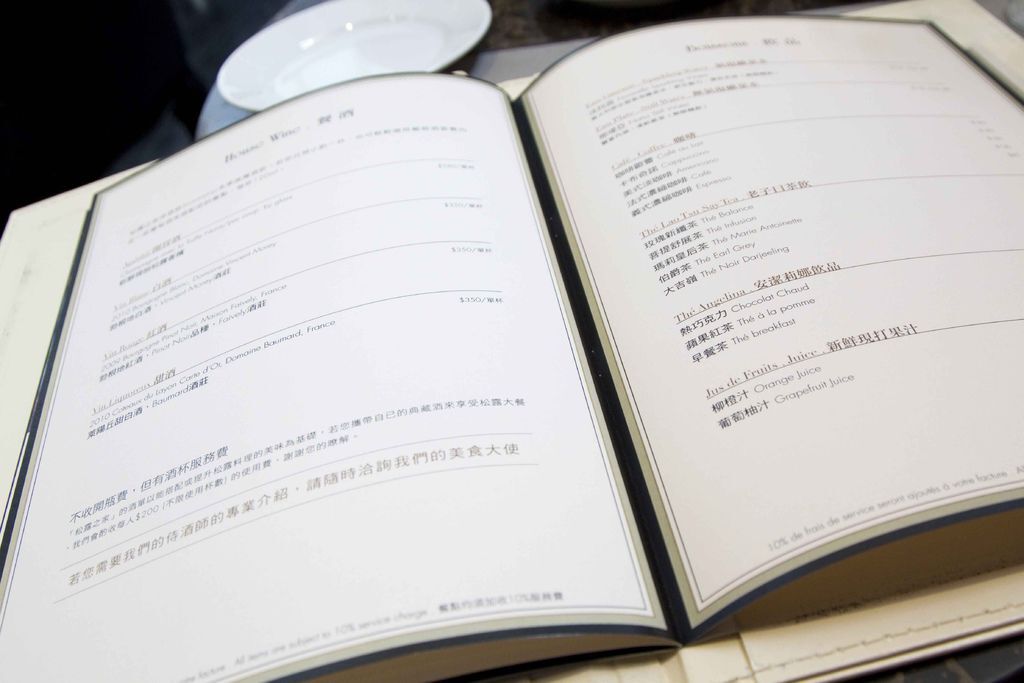 House Wine . 餐酒
$350/單杯
Vin Blanc 白酒
2010 Bourgogne Blanc, Domaine Vincent Morey
勃根地白酒，Vincent Morey酒莊
$350/單杯
Vin Rouge 紅酒
2009 Bourgogne Pinot Noir, Maison Faively, France
勃根地紅酒，Pinot Noir品種，Faively酒莊
$350/單杯
Vin Liquoreux 甜酒
2010 Coteaux du Layon Carte d'Or, Domaine Baumard, France
萊陽丘甜白酒，Baumard酒莊
不收開瓶費，但有酒杯服務費
「松露之家」的酒單以能搭配或提升松露料理的美味為基礎，若您攜帶自己的典藏酒來享受松露大餐
，我們會酌收每人$200 (不限使用杯數) 的使用費，謝謝您的瞭解。
若您需要我們的侍酒師的專業介紹，請隨時洽詢我們的美食大使
facture . All items are subject to 10% service charge 餐點均須加收10%服務費
Café . Coffee . 咖啡
咖啡歐蕾 Café au lait
卡布奇諾 Cappuccino
美式淡咖啡 Americano
法式濃縮咖啡 Café
義式濃縮咖啡 Espresso
Thé Lau Tsu Say Tea . 老子曰茶飲
玫瑰新纖茶 Thé Balance
菩提舒展茶 Thé Infusion
瑪莉皇后茶 Thé Marie Antoinette
伯爵茶 Thé Earl Grey
大吉嶺 Thé Noir Darjeeling
Thé Angelina . 安潔莉娜飲品
熱巧克力 Chocolat Chaud
蘋果紅茶 Thé à la pomme
早餐茶 Thé breakfast
Jus de Fruits . Juice . 新鮮現打果汁
柳橙汁 Orange Juice
葡萄柚汁 Grapefruit Juice
10% de frais de service seront ajoutés à votre facture . Al